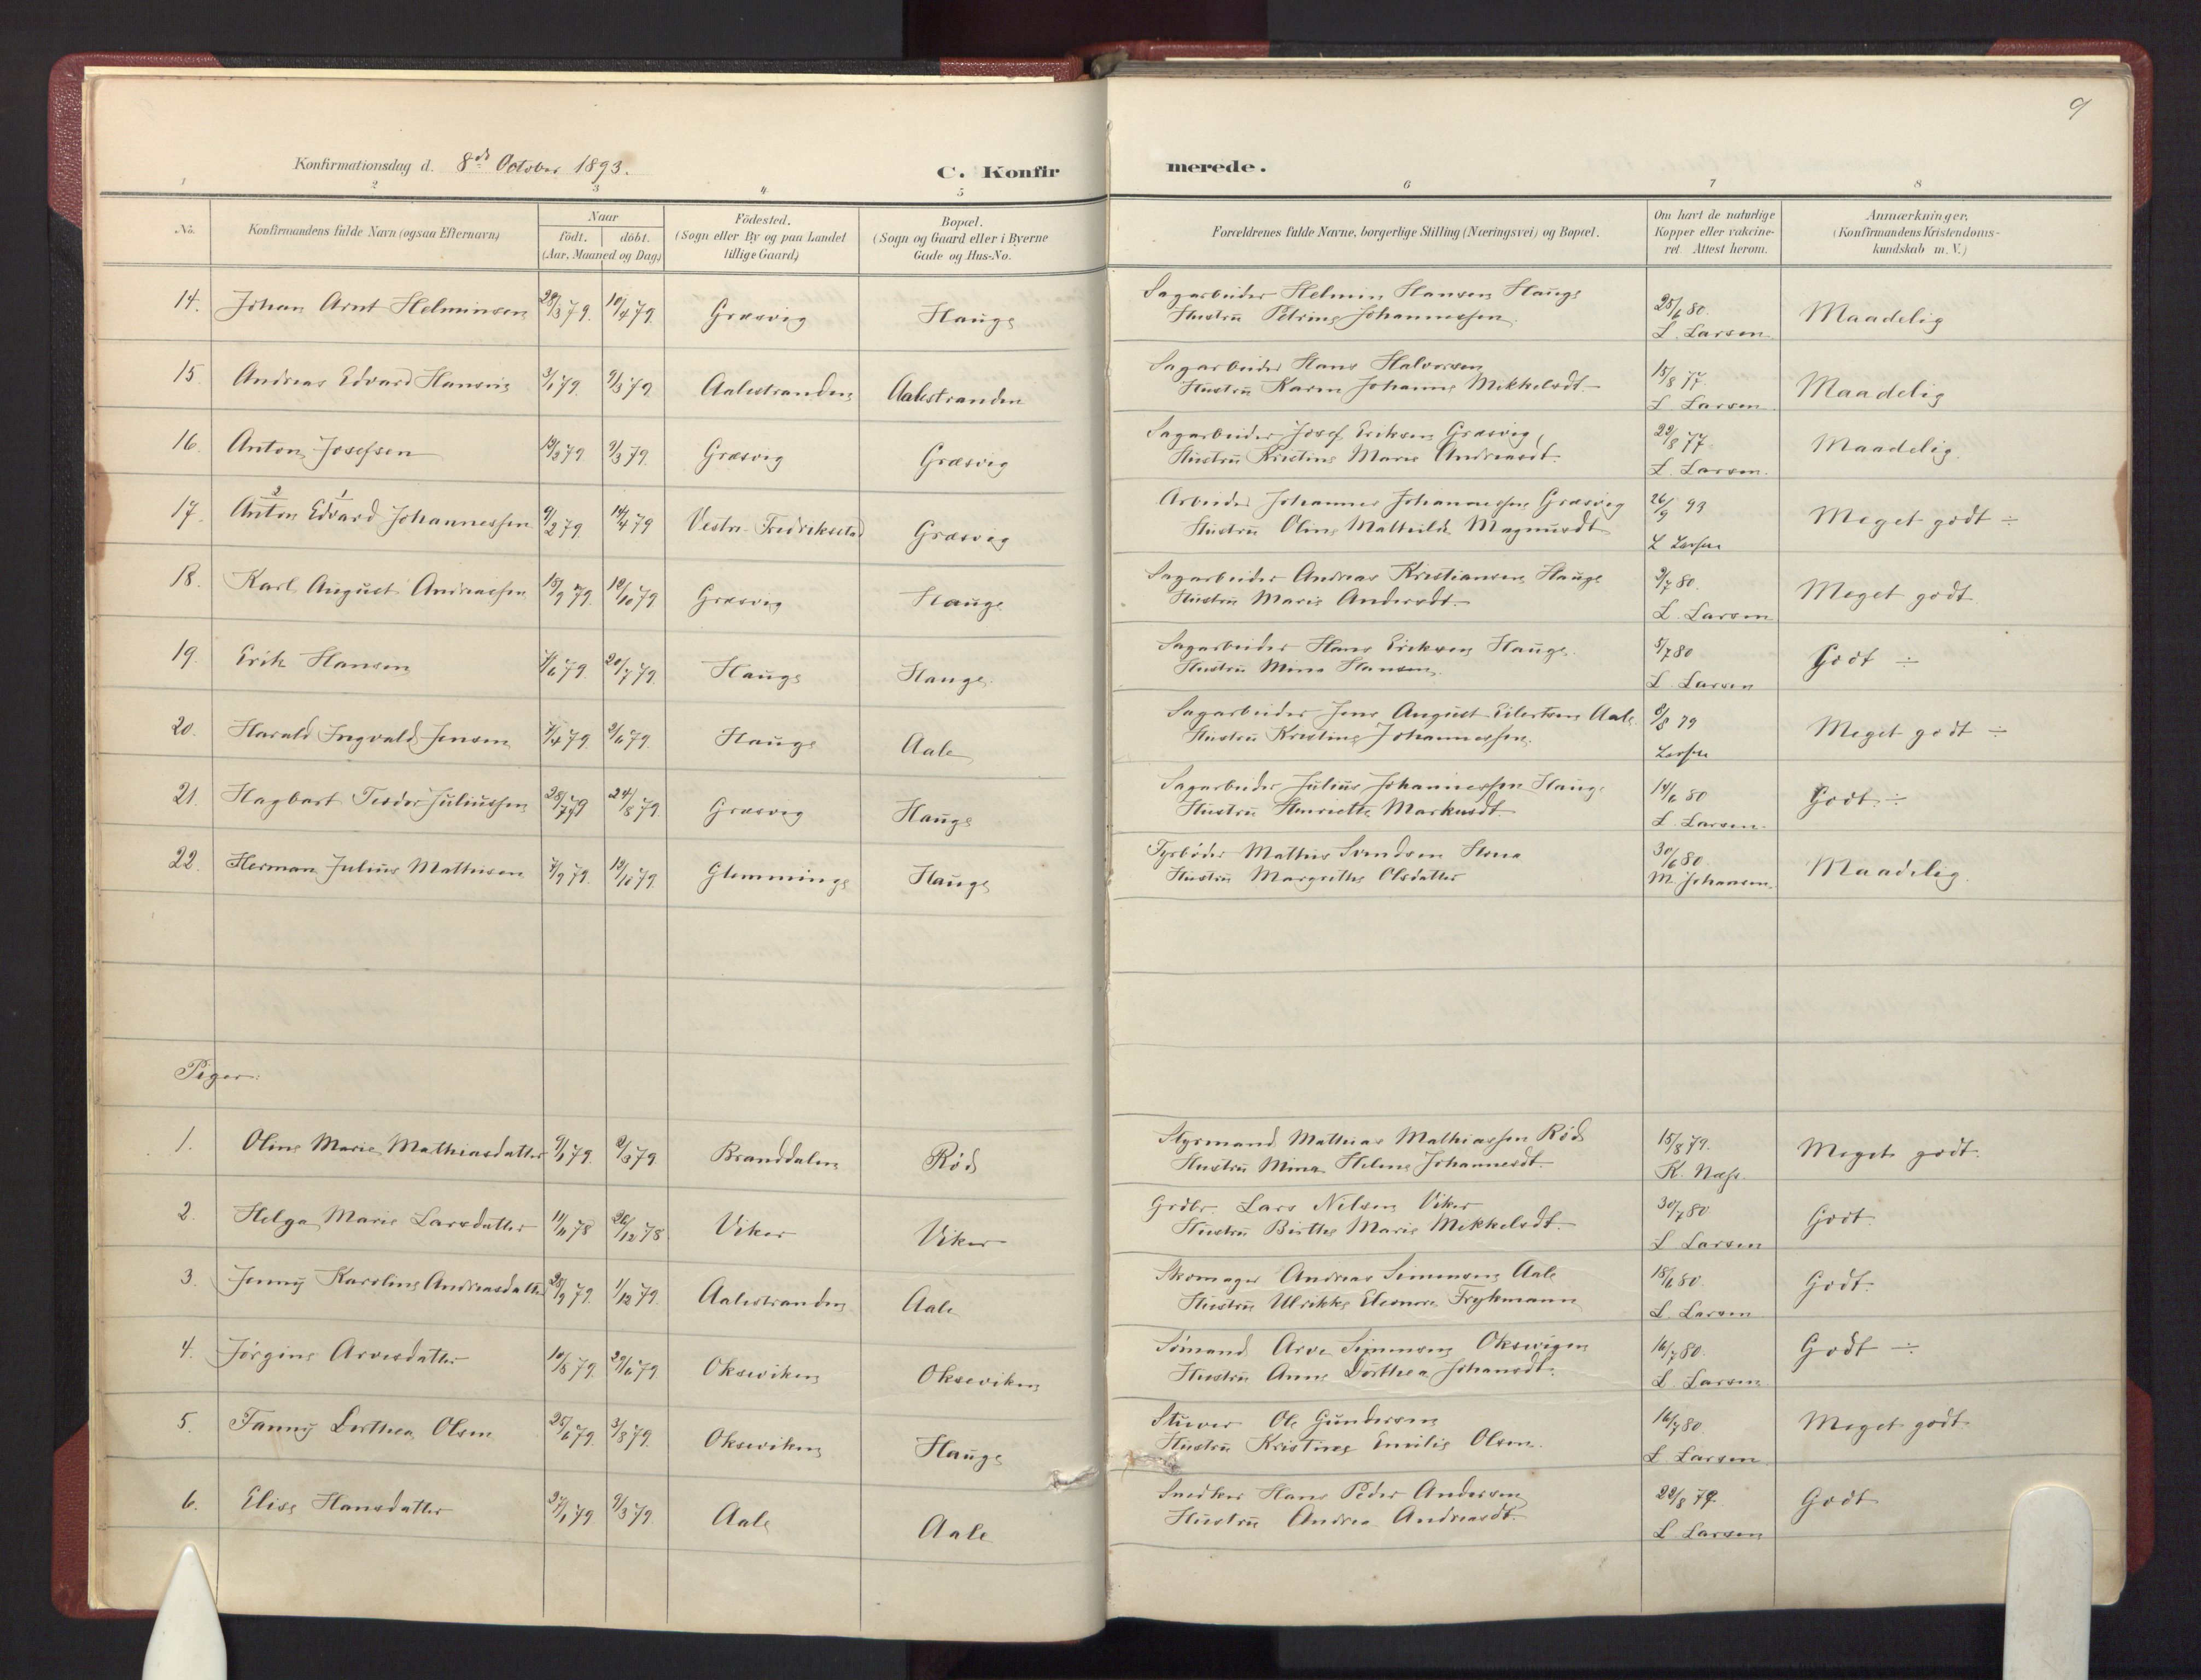 9
Konfirmationsdag d. 8de October 1893.
C. Konfirmerede.
1 2 3 4 5 6 7 8
No.
Konfirmandens fulde Navn (ogsaa Efternavn)
Naar
födt. döbt.
(Aar, Maaned og Dag)
Födested.
(Sogn eller By og paa Landet
tillige Gaard)
Bopæl.
(Sogn og Gaard eller i Byerne
Gade og Hus-No.
Forældrenes fulde Navne, borgerlige Stilling (Næringsvei) og Bopæl.
Om havt de naturlige
Kopper eller vakcine-
ret. Attest herom.
Anmærkninger.
(Konfirmandens Kristendoms-
kundskab m. V.)
14. Johan Arnt Helminsen 28/3 79. 10/4 79. Græsvig Hauge Sagarbeider Helmin Hansen Hauge 25/6 80. Maadelig
Hustru Petrine Johannessen L. Larsen
15. Andreas Edvard Hansen 3/1 79. 9/3 79. Aalestranden Aalestranden Sagarbeider Hans Halvorsen 15/8 77. Maadelig
Hustru Karen Johanne Mikkelsdt. L. Larsen
16. Anton Josefsen 9/3 79. Græsvig Græsvig Sagarbeider Josef Eriksen Græsvig, 22/8 77 Maadelig.
Hustru Kristine Marie Andreasdt. L. Larsen.
2 1
17. Anton Edvard Johannessen 9/2 79. 14/4 79 Vestre Fredrikstad Græsvig Arbeider Johannes Johannessen Græsvig 26/9 93 Meget godt ÷
Hustru Oline Mathilde Magnusdt L Larsen
18. Karl August Andreassen 15/9 79. 12/10 79 Græsvig Hauge Sagarbeider Andreas Kristiansen Hauge 9/7 80. Meget godt
Hustru Marie Andersdt. L. Larsen
19. Erik Hansen 20/7 79. Hauge Hauge. Sagarbeider Hans Eriksen Hauge. 5/7 80 Godt ÷
Hustru Mina Hansen. L. Larsen
20. Harald Ingvald Jensen 7/4 79. 2/6 79. Hauge Aale Sagarbeider Jens August Eilertsen Aale 8/8 79 Meget godt ÷
Hustru Kristine Johannessen. Larsen
21. Hagbart Teodor Juliussen 28/7 79 24/8 79. Græsvig Hauge Sagarbeider Julius Johannessen Hauge 14/6 80 Godt ÷
Hustru Henriette Markusdt. L. Larsen.
22. Herman Julius Mathisen 7/9 79. 12/10 79. Glemminge Hauge Fyrbøder Mathis Svendsen 30/6 80. Maadelig.
Hustru Margrethe Olsdatter M. Johansen.
Piger:
1. Oline Marie Mathiasdatter 9/1 79. 2/3 79 Branddalen Rød Styrmand Mathias Mathiassen Rød 15/8 79. Meget godt.
Hustru Mina Helene Johannesdt. K. Næss.
2. Helga Marie Larsdatter 11/11 78 26/12 78. Viker Viker Grdbr. Lars Nilsen Viker 30/7 80 Godt.
Hustru Birthe Marie Mikkelsdt. L Larsen
3. Jenny Karoline Andreasdatter 28/9 79. 1/12 79. Aalestranden Aale Skomager Andreas Simensen Aale 18/6 80. Godt.
Hustru Ulrikke Eleonore Frykmann L. Larsen
4. Jørgine Arvesdatter 10/5 79. 29/6 79. Oksviken Okseviken Sømand Arve Simensen Oksevigen 16/7 80. Godt ÷
Hustru Anne Dorthea Johansdt. L. Larsen
5. Fanny Dorthea Olsen 25/6 79. 3/8 79. Okseviken Hauge Stuver Ole Gundersen 16/7 80. Meget godt.
Hustru Kristine Emilie Olsen. L Larsen
6. Elise Hansdatter 27/1 79. 9/3 79. Aale Aale Snedker Hans Peder Andersen 22/8 79. Godt
Hustru Andrea Andreasdt. L. Larsen